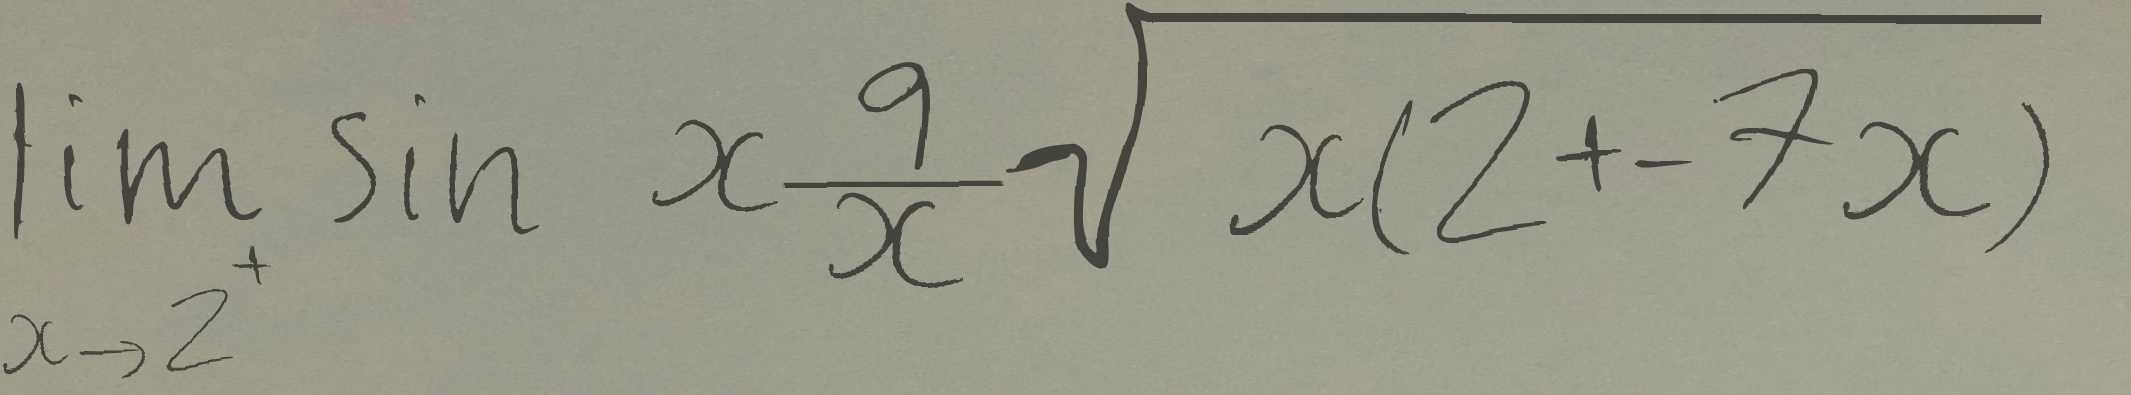 \lim_{x \to 2^+} \sin x \frac{9}{x} \sqrt{x(2+-7x)}